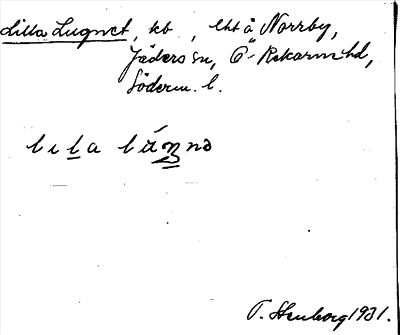 Lilla Lugnet, kb , lht å Norrby,
Jäders sn, Ö-Rekarne hd,
Söderm. l.
lila
T. Stenborg 1931.